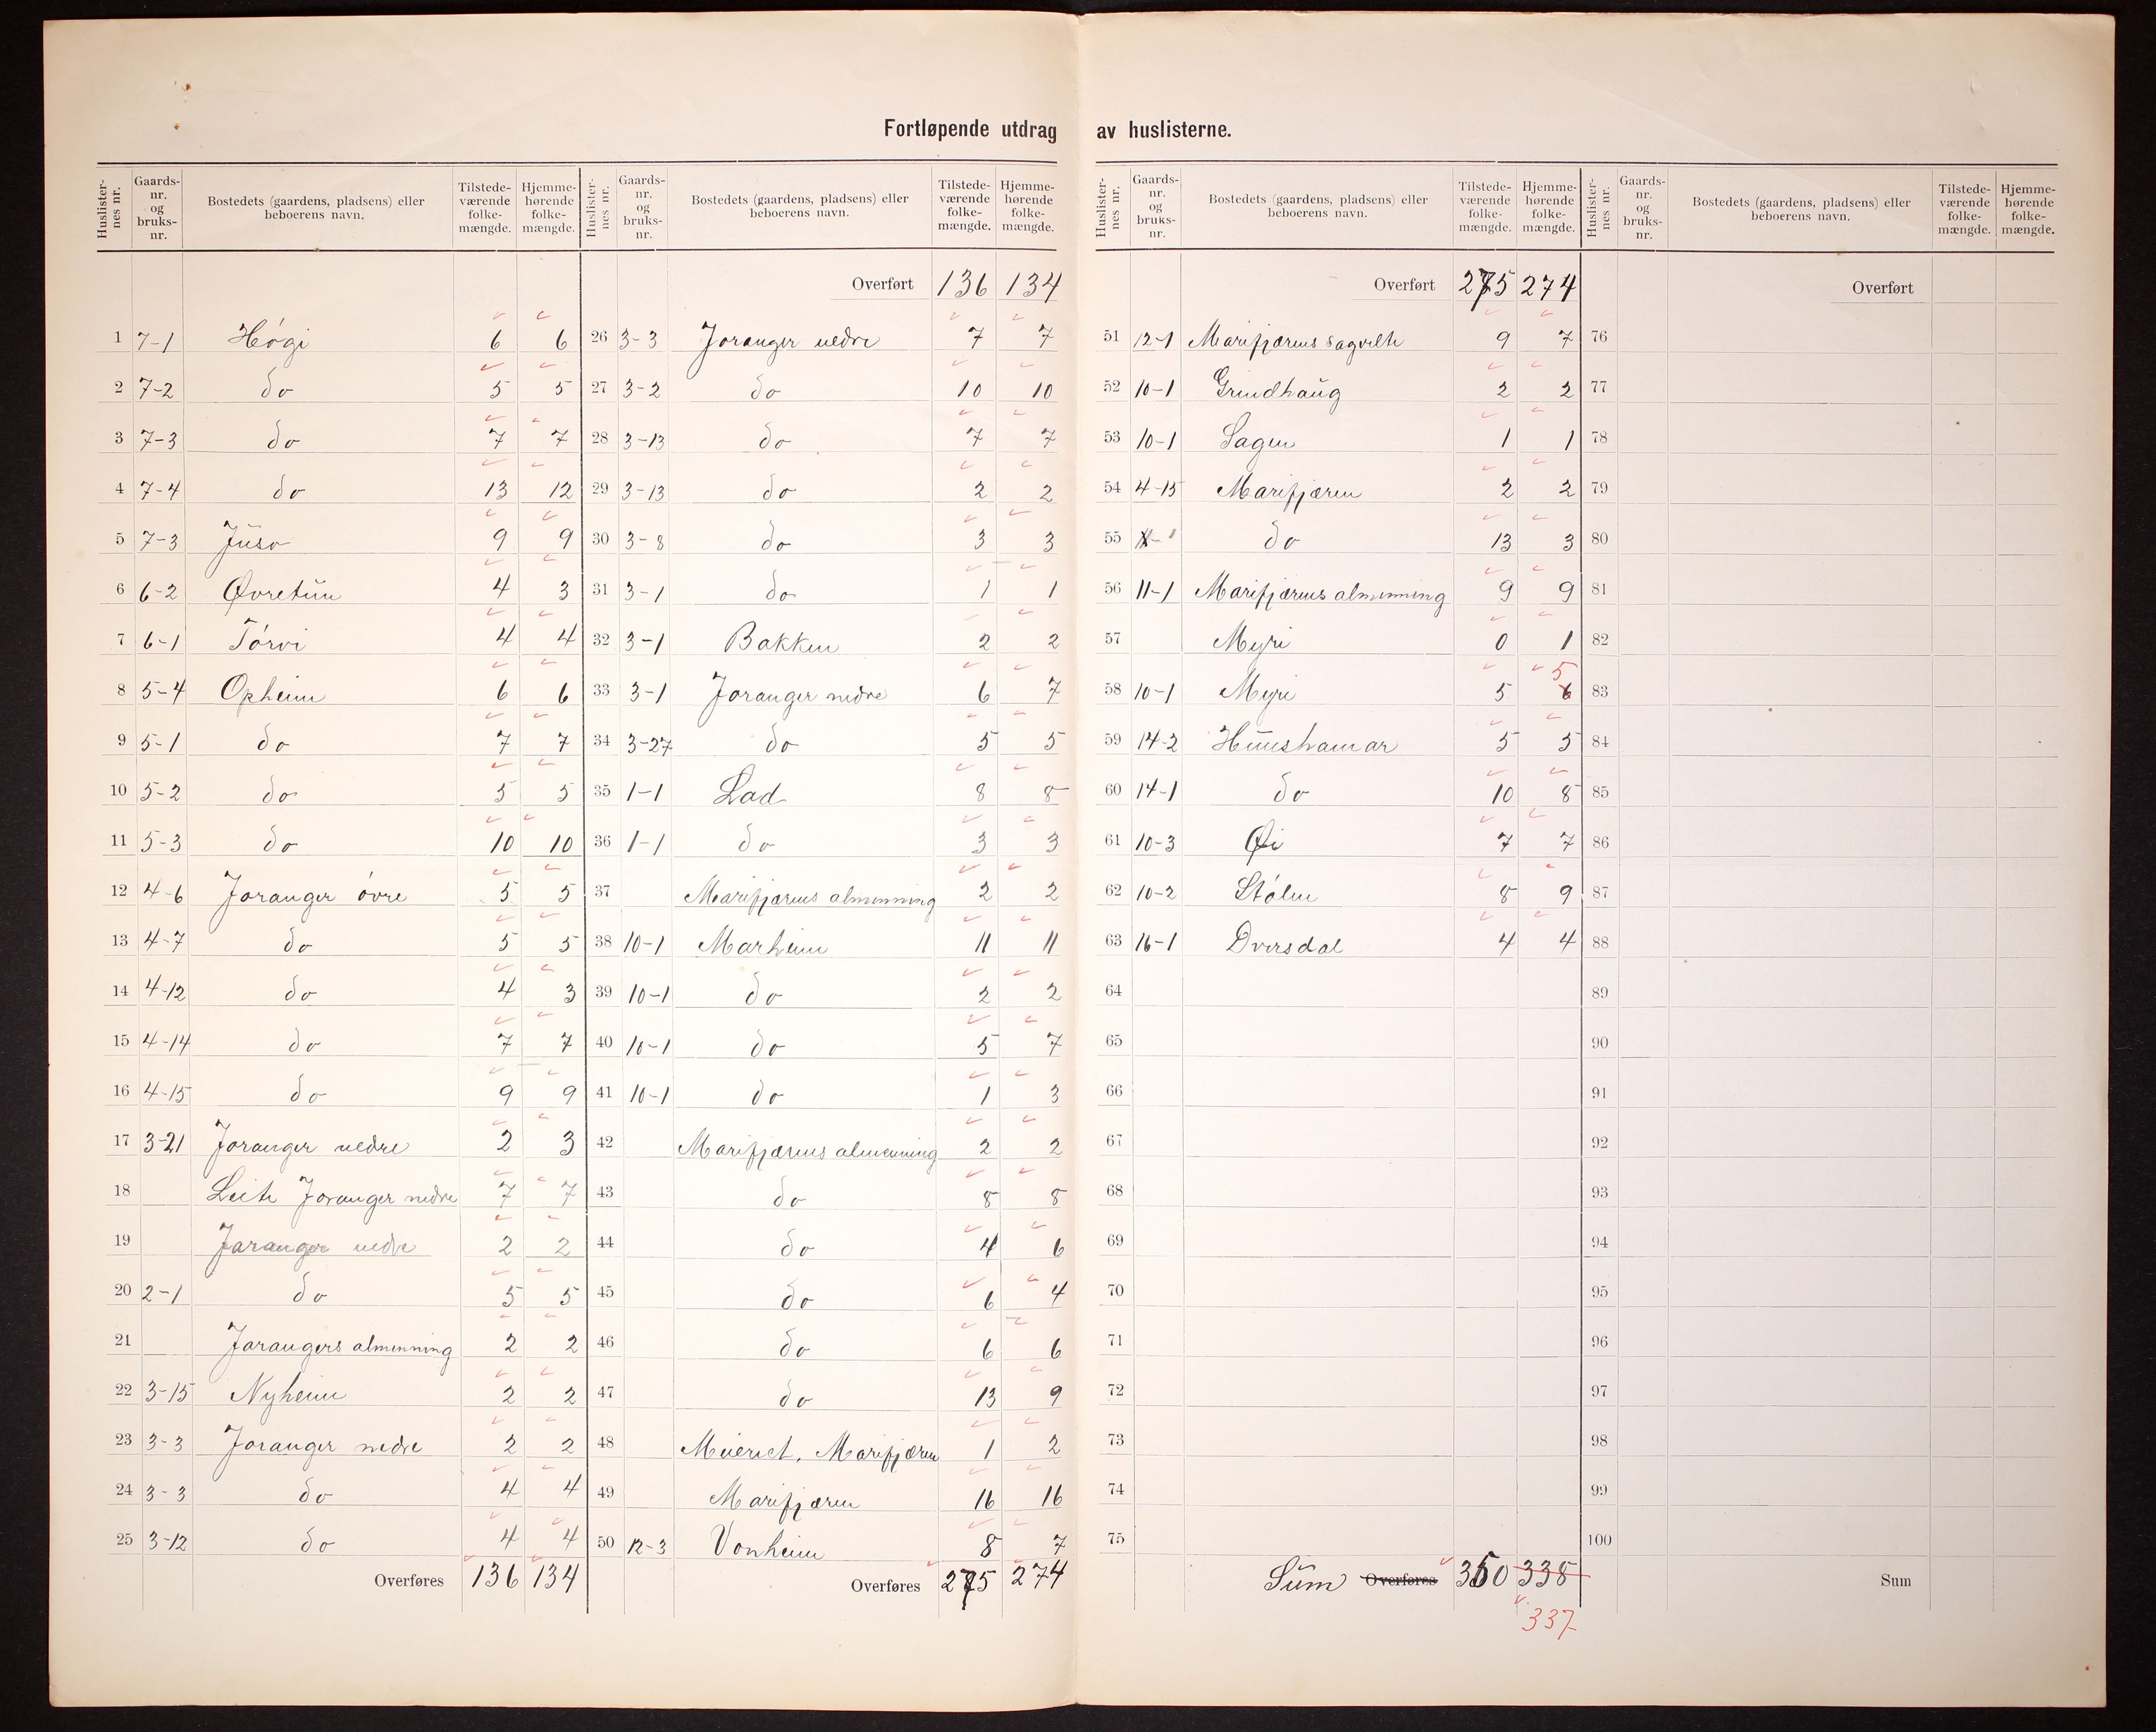 Fortløpende utdrag av huslisterne.
Huslisternes nr. Gaards-nr. og bruks-nr. Bostedets (gaardens, pladsens) eller beboerens navn. Tilstedeværende folkemængde. Hjemmehørende folkemængde.
Huslisternes nr. Gaards-nr. og bruks-nr. Bostedets (gaardens, pladsens) eller beboerens navn. Tilstedeværende folkemængde. Hjemmehørende folkemængde.
Huslisternes nr. Gaards-nr. og bruks-nr. Bostedets (gaardens, pladsens) eller beboerens navn. Tilstedeværende folkemængde. Hjemmehørende folkemængde.
Huslisternes nr. Gaards-nr. og bruks-nr. Bostedets (gaardens, pladsens) eller beboerens navn. Tilstedeværende folkemængde. Hjemmehørende folkemængde.
1 7-1 Høgi 6 6
2 7-2 do 5 5
3 7-3 do 7 7
4 7-4 do 13 12
5 7-3 Juso 9 9
6 6-2 Øvretun 4 3
7 6-1 Tørvi 4 4
8 5-4 Opheim 6 6
9 5-1 do 7 7
10 5-2 do 5 5
11 5-3 do 10 10
12 4-6 Joranger øvre 5 5
13 4-7 do 5 5
14 4-12 do 4 3
15 4-14 do 7 7
16 4-15 do 9 9
17 3-21 Joranger nedre 2 3
18 Leite Joranger nedre 7 7
19 Joranger nedre 2 2
20 2-1 do 5 5
21 Jorangers almenning 2 2
22 3-15 Nyheim 2 2
23 3-3 Joranger nedre 2 2
24 3-3 do 4 4
25 3-12 do 4 4
Overføres 136 134
Overført 136 134
26 3-3 Joranger nedre 7 7
27 3-2 do 10 10
28 3-13 do 7 7
29 3-13 do 2 2
30 3-8 do 3 3
31 3-1 do 1 1
32 3-1 Bakken 2 2
33 3-1 Joranger nedre 6 7
34 3-27 do 5 5
35 1-1 Lad 8 8
36 1-1 do 3 3
37 Marifjærens almenning 2 2
38 10-1 Marheim 11 11
39 10-1 do 2 2
40 10-1 do 5 7
41 10-1 do 1 3
42 Marifjærens almenning 2 2
43 do 8 8
44 do 4 6
45 do 6 4
46 do 6 6
47 do 13 9
48 Meieriet, Marifjæren 1 2
49 Marifjæren 16 16
50 12-3 Vonheim 8 7
Overføres 275 274
Overført 275 274
51 12-1 Marifjærens sagvelte 9 7
52 10-1 Grindhaug 2 2
53 10-1 Sagen 1 1
54 4-15 Marifjæren 2 2
55 do 13 3
56 11-1 Marifjærens almenning 9 9
57 Myri 0 1
5
58 10-1 Myri 5 6
59 14-2 Hunshamar 5 5
60 14-1 do 10 8
61 10-3 Øi 7 7
62 10-2 Stølen 8 9
63 16-1 Dversdal 4 4
64
65
66
67
68
69
70
71
72
73
74
75
Sum Overføres 350 338
337
Overført
76
77
78
79
80
81
82
83
84
85
86
87
88
89
90
91
92
93
94
95
96
97
98
99
100
Sum